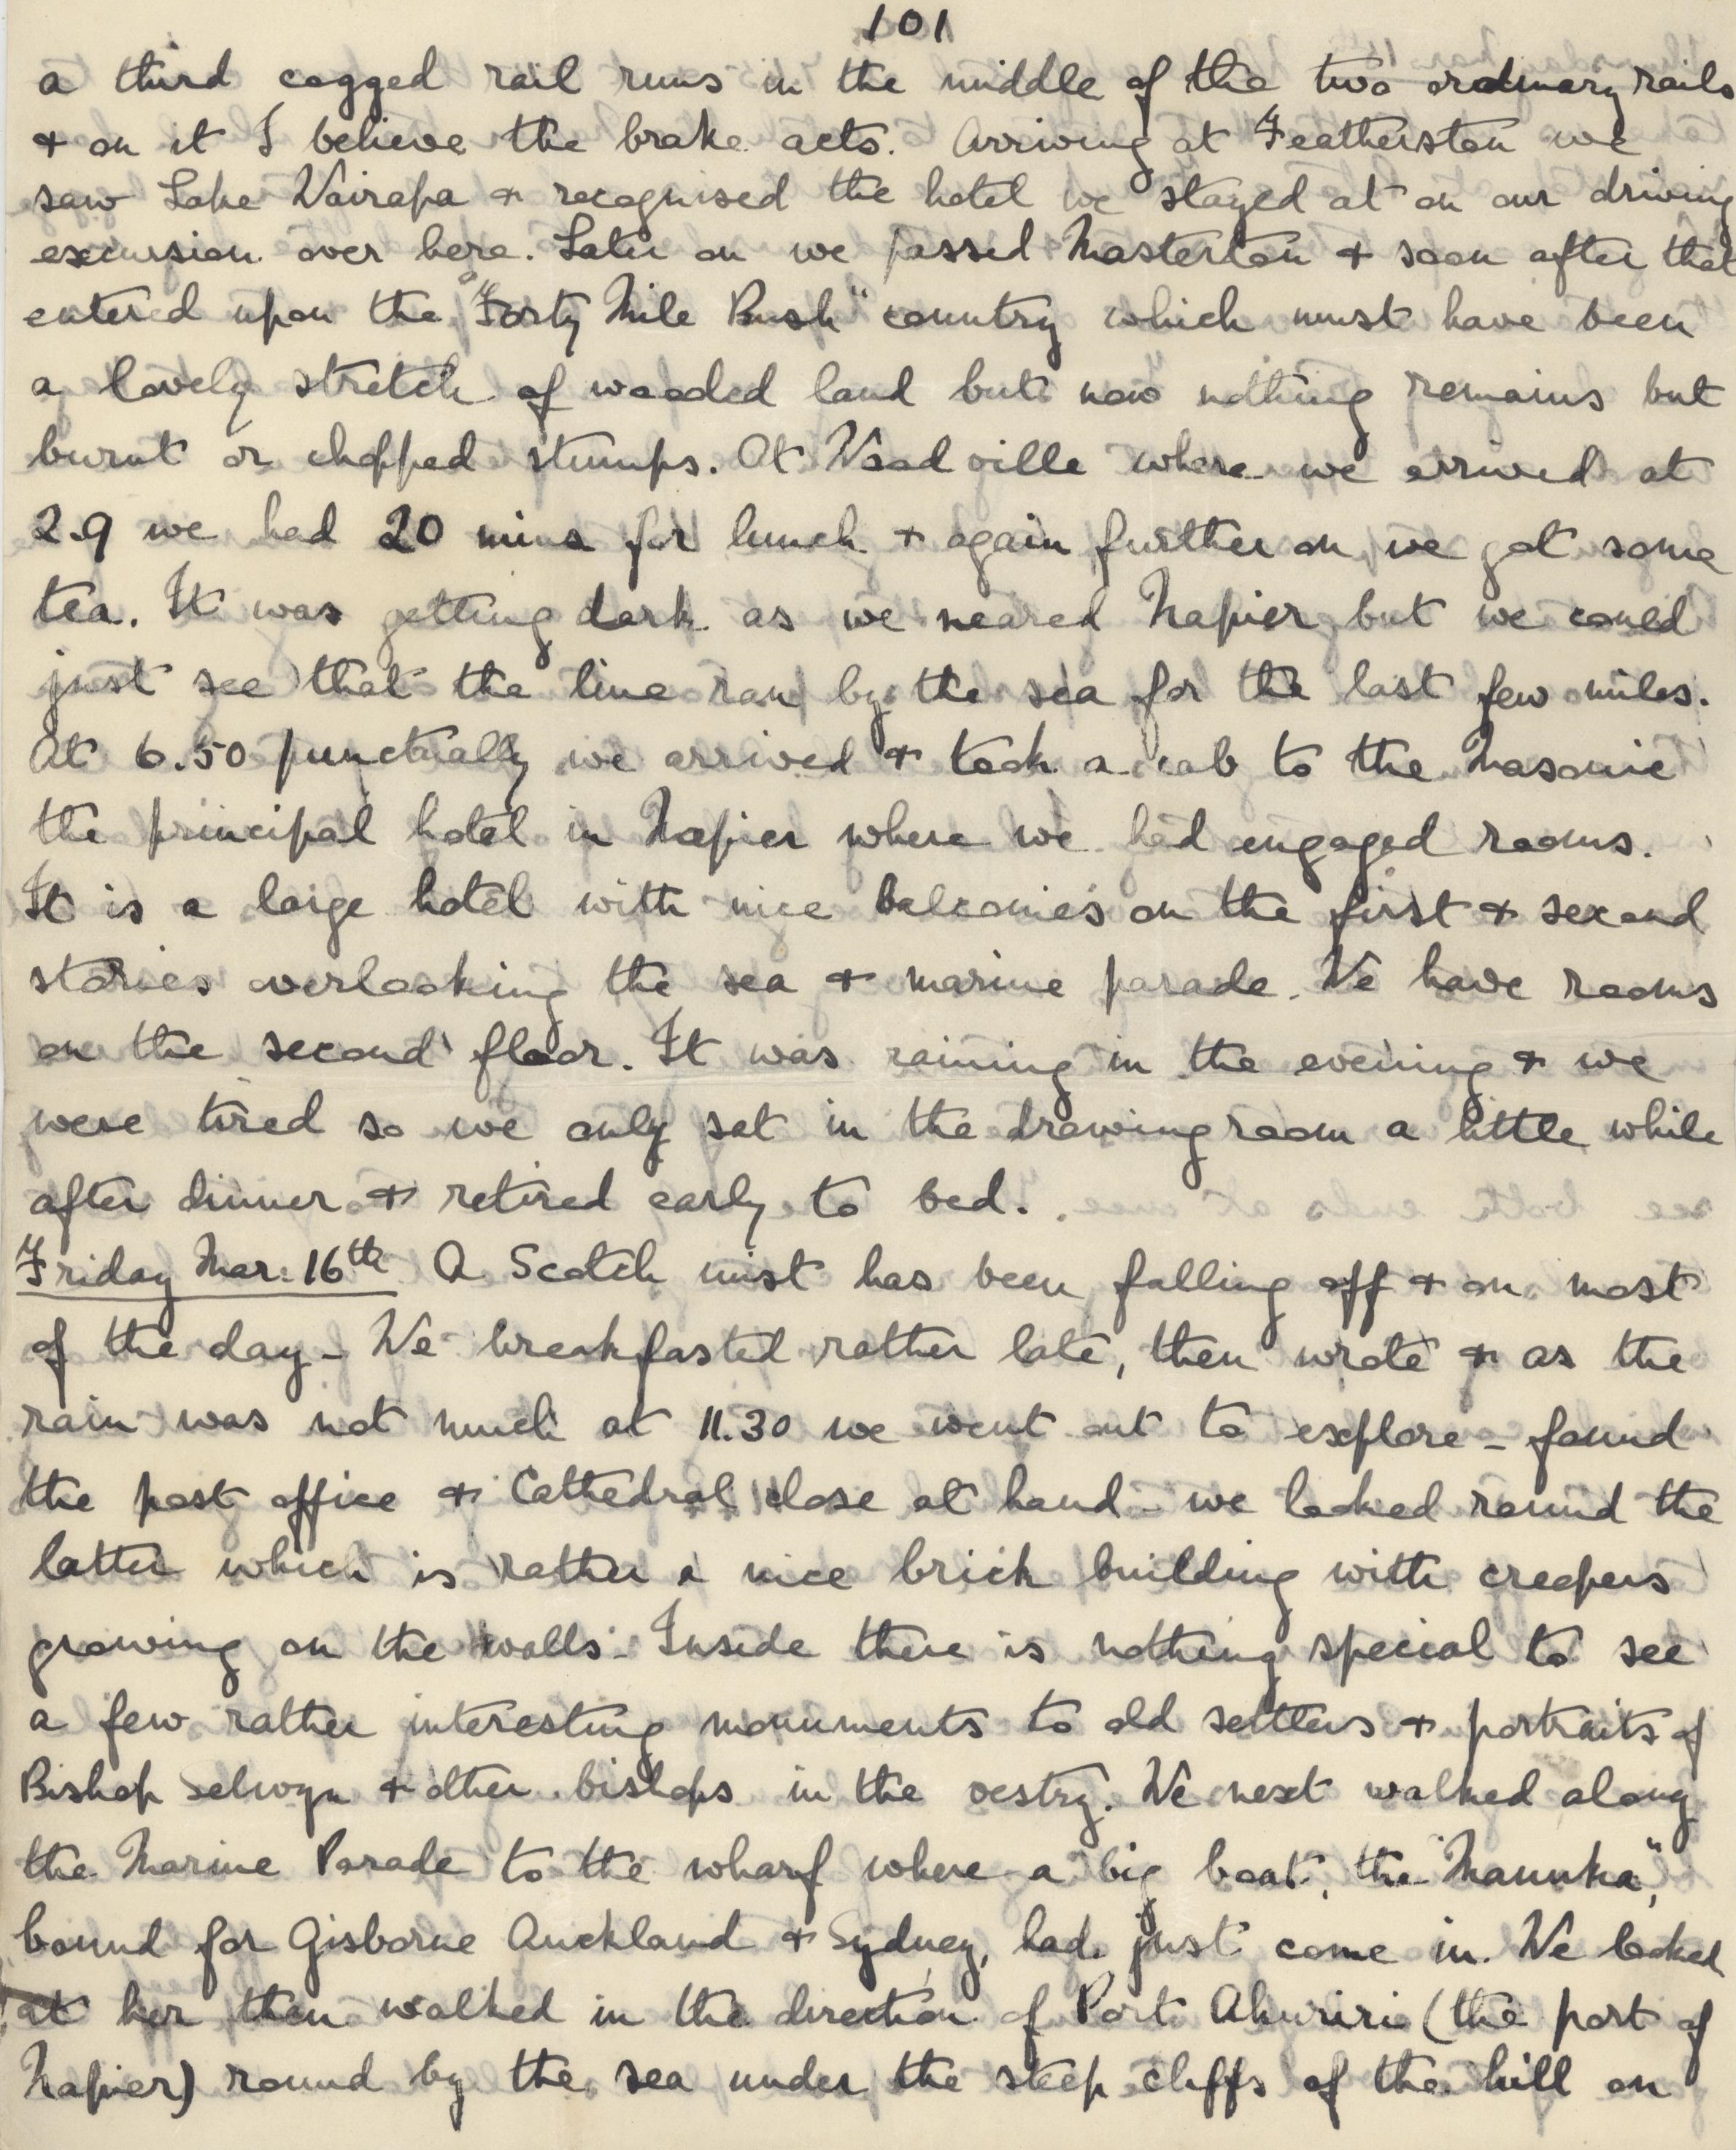 101
a third cogged rail runs in the middle of the two ordinary rails
+ on it I believe the brake acts. Arriving at Featherston we
saw Lake Wairapa + recognised the hotel we stayed at on our driving
excursion over here. Later on we passed Masterton + soon after that
entered upon the "Forty Mile Bush" country which must have been
a lovely stretch of wooded land but now nothing remains but
burnt or chopped stumps. At Woodville where we arrived at
2.9 we had 20 mins for lunch + again further on we got some
tea. It was getting dark as we neared Napier but we could
just see that the line ran by the sea for the last few miles.
At 6.50 punctually we arrived + took a cab to the Masonic
the principal hotel in Napier where we had engaged rooms.
It is a large hotel with nice balconies on the first + second
stories overlooking the sea + marine parade. We have rooms
on the second floor. It was raining in the evening + we
were tired so we only sat in the drawing room a little while
after dinner + retired early to bed.
Friday Mar: 16th A Scotch mist has been falling off + on most
of the day - We breakfasted rather late, then wrote + as the
rain was not much at 11.30 we went out to explore - found
the post office + Cathedral close at hand - we looked round the
latter which is rather a nice brick building with creepers
growing on the walls - Inside there is nothing special to see
a few rather interesting monuments to old settlers + portraits of
Bishop Selwyn + other bishops in the vestry. We next walked along
the Marine Parade to the wharf where a big boat, the "Manuka",
bound for Gisborne Auckland + Sydney, had just come in. We looked
at her then walked in the direction of Port Ahuriri (the port of
Napier) round by the sea under the steep cliffs of the hill on